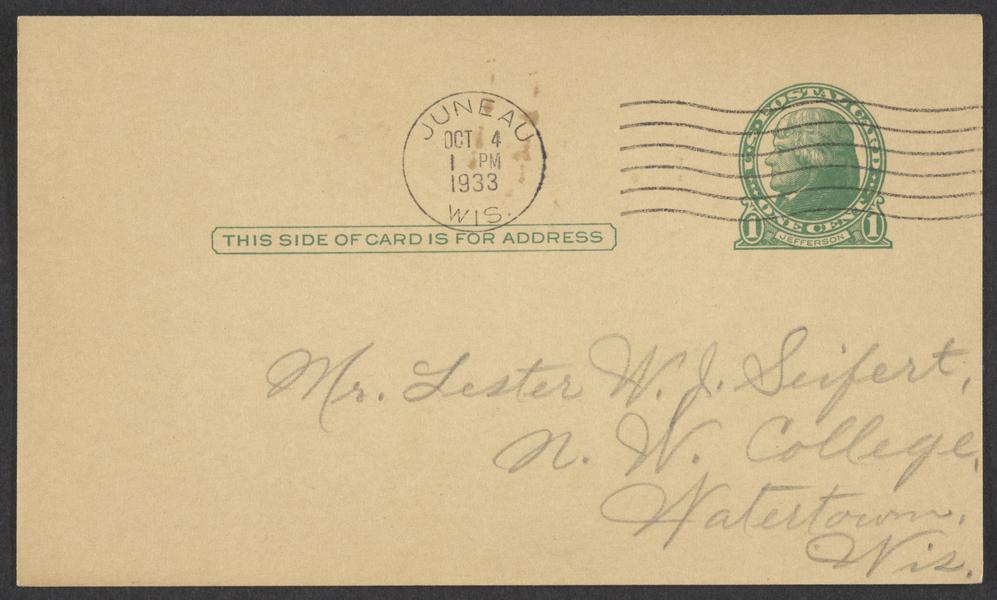 JUNEAU
OCT 4
1 PM
1933
WIS.
U·S·POSTAL CARD
ONE CENT
1 JEFFERSON 1
THIS SIDE OF CARD IS FOR ADDRESS
Mr. Lester W. J. Seifert,
N. W. College,
Watertown,
Wis.